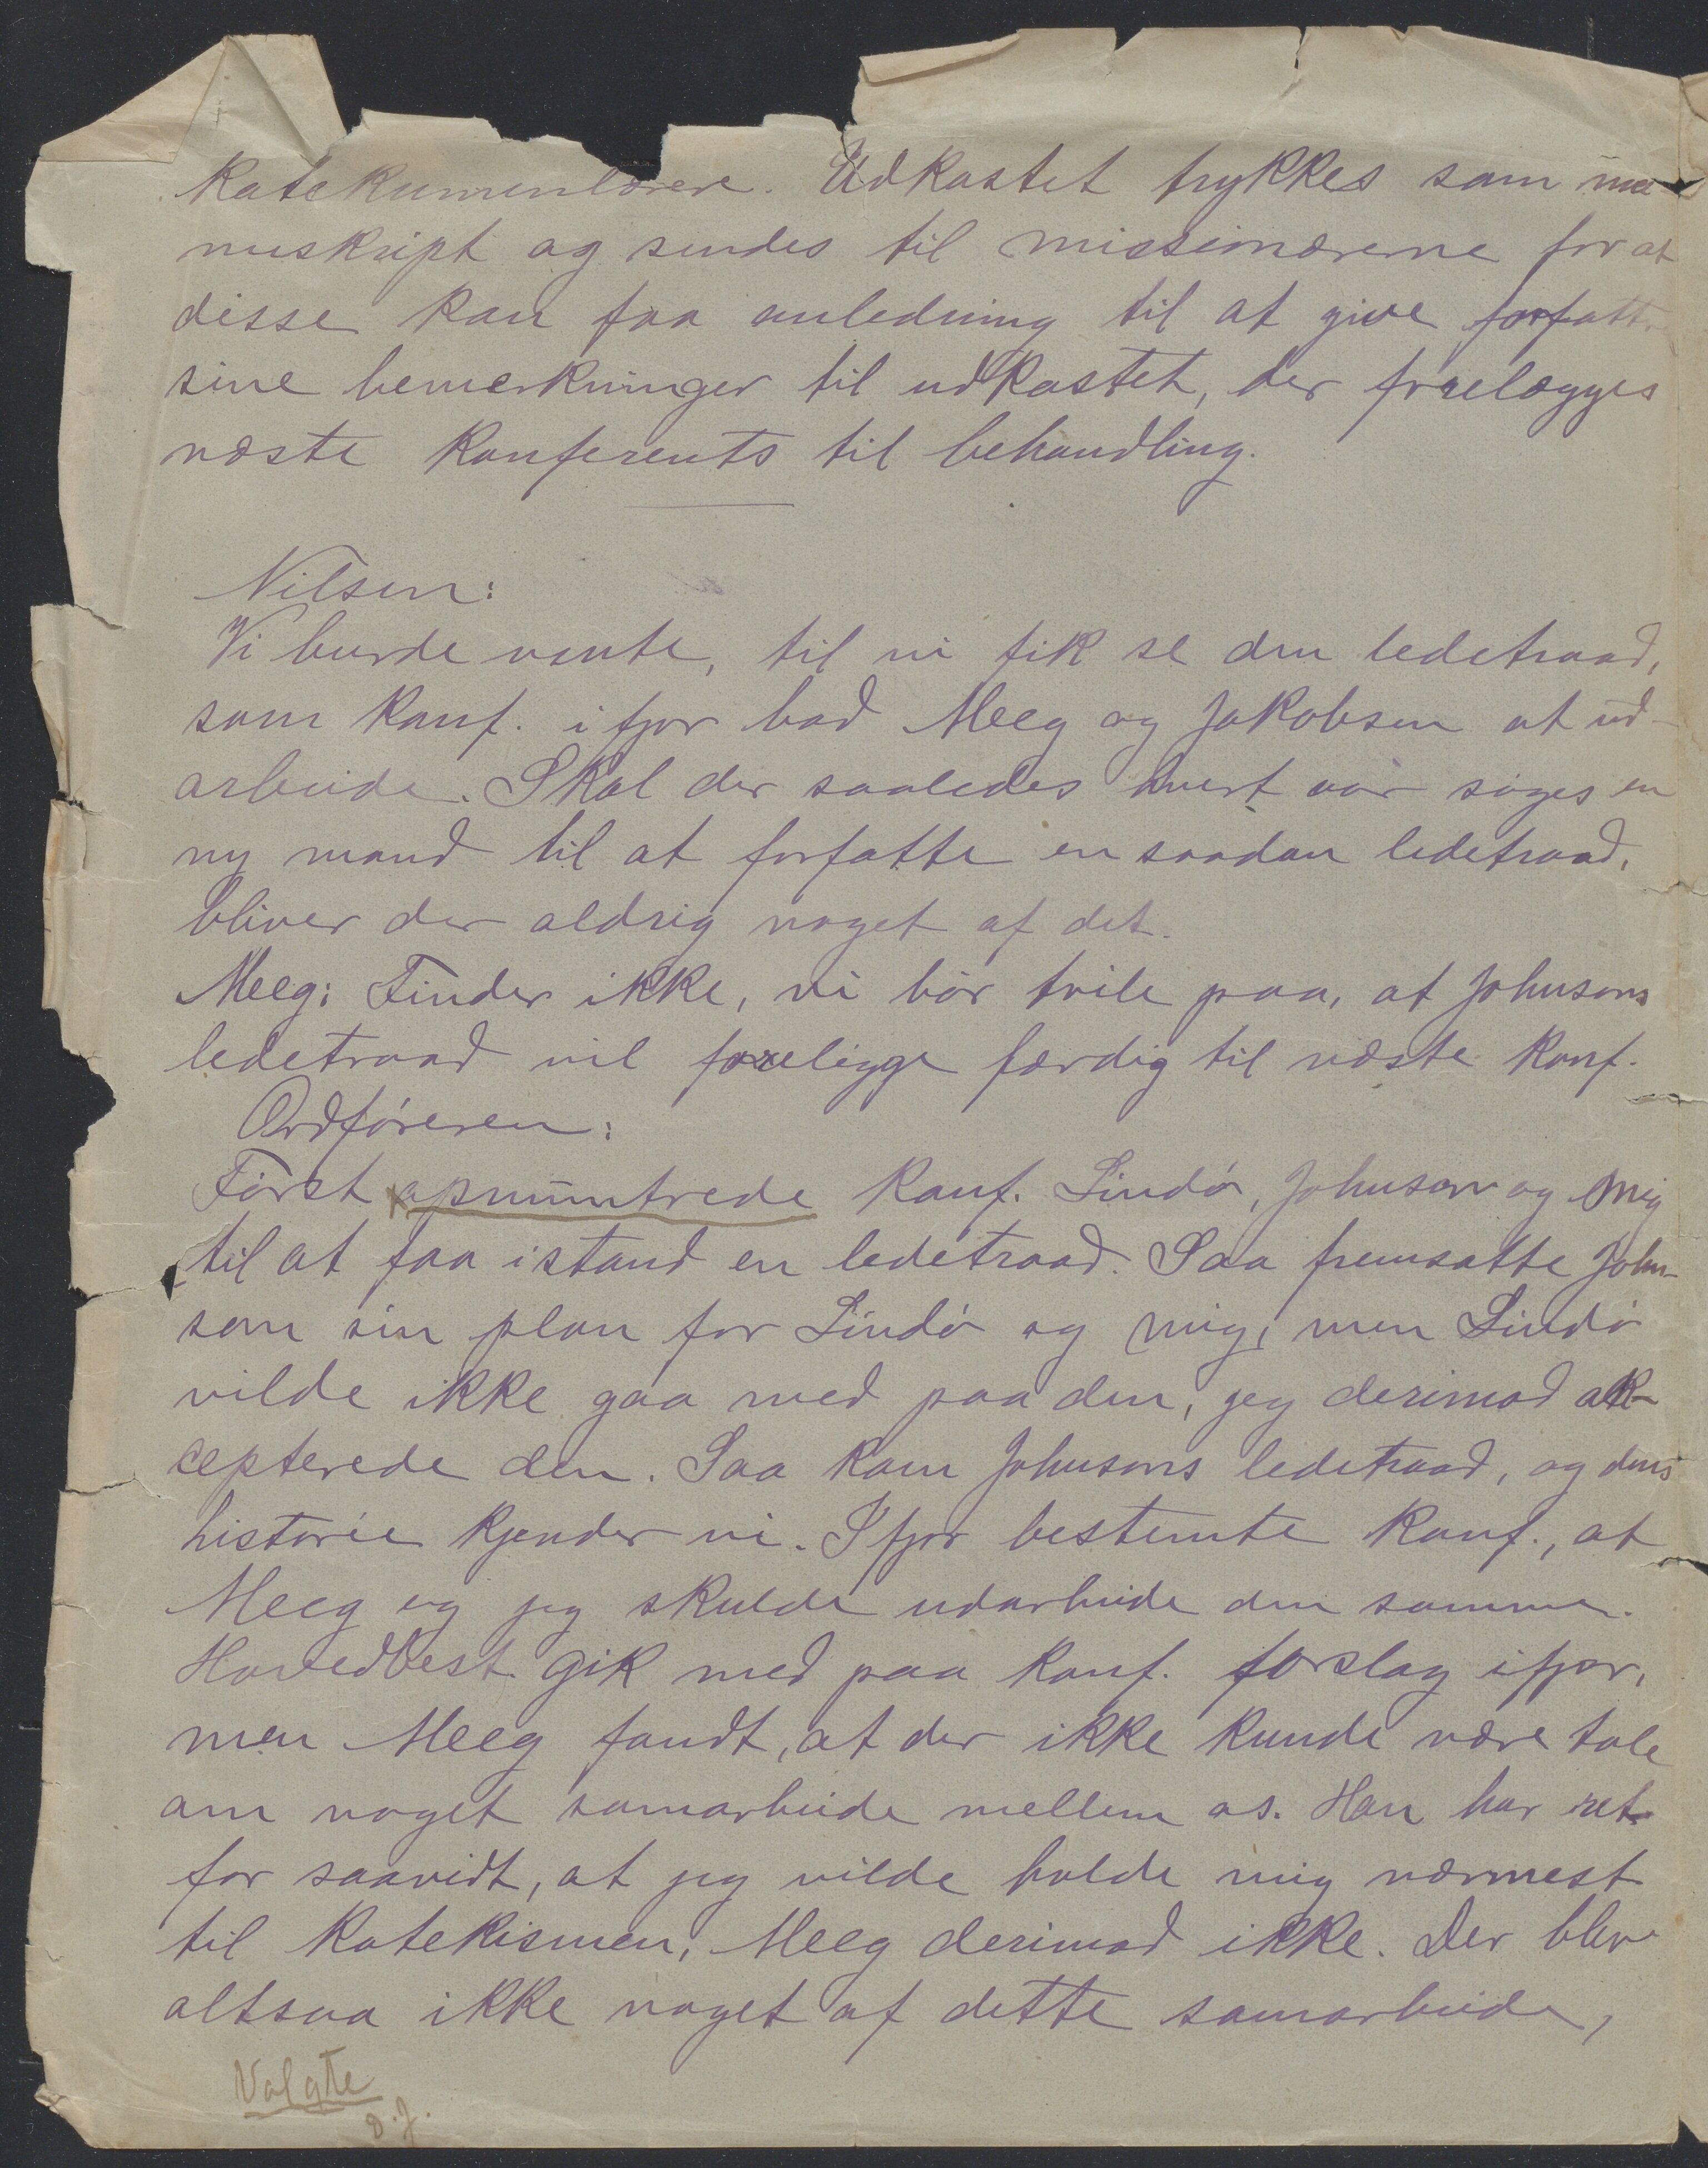 Katekumenlærere. Udkastet trykkes som ma-
nuskript og sendes til missionærerne for at
disse kan faa anledning til at give forfatt
sine bemerkninger til udkastet, der forelægges
næste Konferents til behandling.
Nilsen:
Vi burde vente, til vi fik se den ledetraad,
som Konf. ifjor bad Meeg og Jakobsen at ud-
arbeide. Skal der saaledes hvert aar søges en
ny mand til at forfatte en saadan ledetraad,
bliver der aldrig noget af det.
Meeg: Finder ikke, vi bør tvile paa, at Johnsons
ledetraad vil foreligge færdig til næste Konf.
Ordføreren:
Først opmuntrede Konf. Lindø, Johnson og mig
til at faa istand en ledetraad. Saa fremsatte John-
son sin plan for Lindø og mig, men Lindø
vilde ikke gaa med paa den, jeg derimod ak-
cepterede den. Saa kom Johnsons ledetraad, og dens
historie kjender vi. Ifjor bestemte Konf., at
Meeg og jeg skulde udarbeide den sammen.
Hovedbest. gik med paa Konf. forslag ifjor,
men Meeg fandt, at der ikke kunde være tale
om noget samarbeide mellem os. Han har ret
for saavidt, at jeg vilde holde mig nærmest
til Katekismen, Meeg derimod ikke. Der blev
altsaa ikke noget af dette samarbeide,
Valgte
D.J.